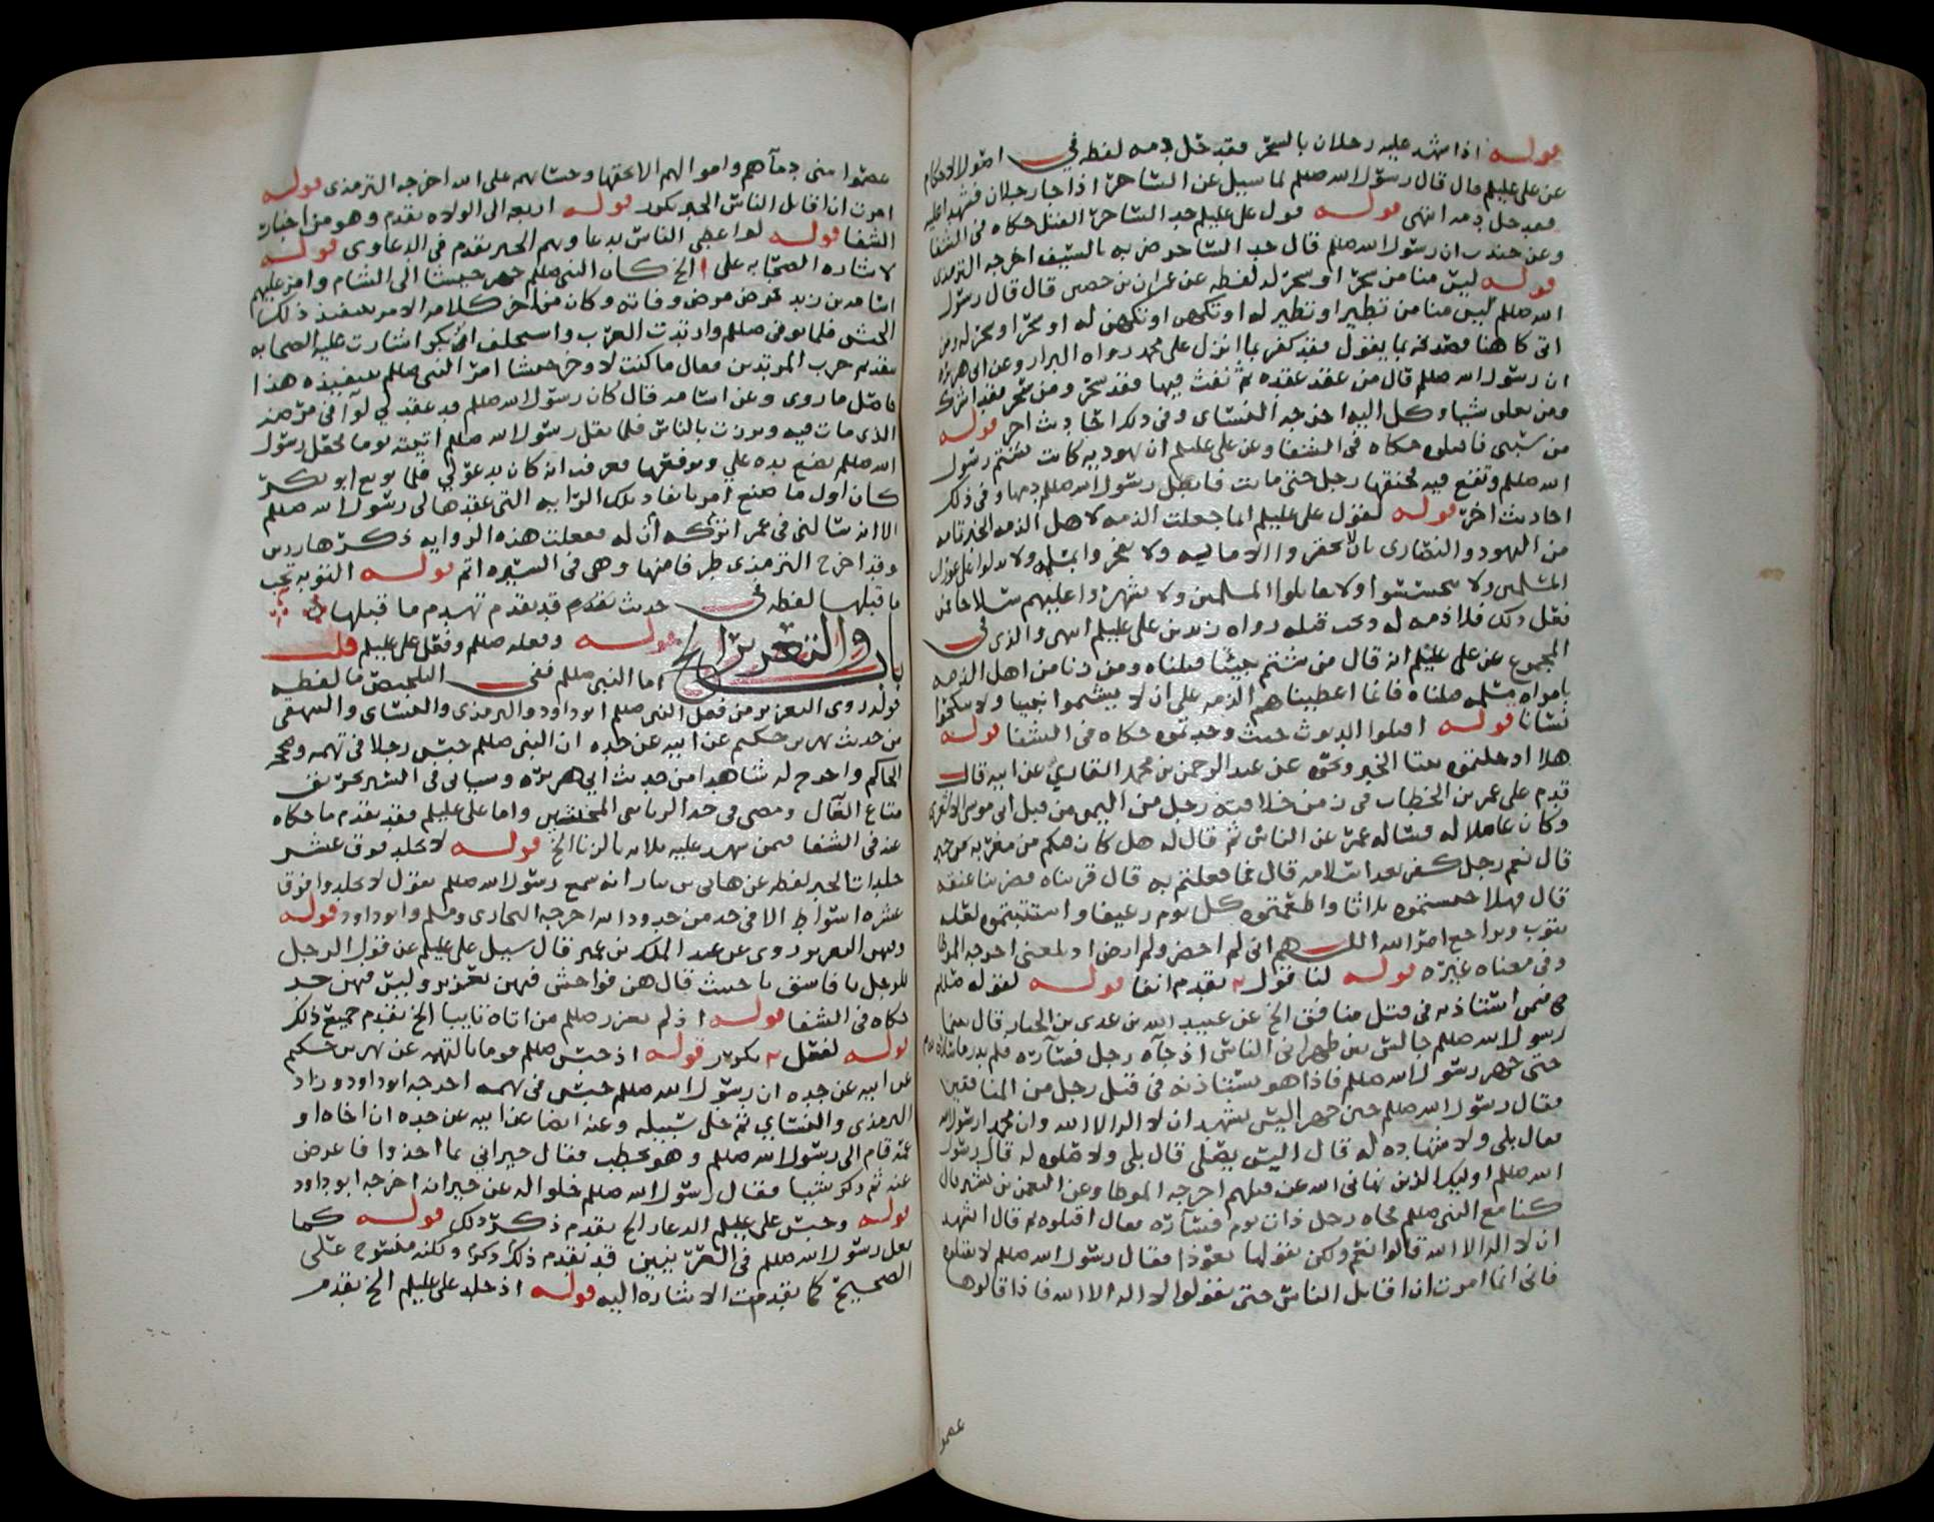 قوله اذا شهد عليه رجلان بالسحر فقد حل دمه لفظه في اصول الاحكام
عن علي عليلم قال قال رسول الله صللم لما سيل عن الساحر اذا جا رجلان فشهدا عليه
فقد حل دمه انتهى قوله قول علي عليلم حد الساحر القتل حكاه في الشفا
وعن جندب ان رسول الله صللم قال حد الساحر ضربه بالسيف اخرجه الترمذي
قوله ليس منا من سحر او سحر له لفظه عن عمران بن حصين قال قال رسول
الله صللم ليس منا من تطير او تطير له او تكهن او تكهن له او سحر او سحر له ومن
اتى كاهنا فصدقه بما يقول فقد كفر بما انزل على محمد رواه البزار وعن ابي هريرة
ان رسول الله صللم قال من عقد عقده ثم نفث فيها فقد سحر ومن سحر فقد اشرك
ومن تعلق شيا وكل اليه اخرجه النسائ وفي ذلك احاديث اخر قوله
من سبني فاقتلوه حكاه في الشفا وعن علي عليلم ان يهوديه كانت تشتم رسول
الله صللم وتقع فيه فخنقها رجل حتى ماتت فابطل رسول الله صللم دمها وفي ذلك
احاديث اخر قوله لقول علي عليلم انما جعلت الذمه لاهل الذمه الخبر تمامه
من اليهود والنصارى بان لا
المسلمين ولا ولا يقاتلوا المسلمين ولا يظهروا عليهم
فعل ذلك فلا ذمه له وحل قتله رواه زيد بن علي عليلم انتهى والذي في
المجموع عن علي عليلم انه قال من شتم نبيا قتلناه ومن زنا من اهل الذمه
بامراه مسلمه قتلناه فانما اعطيناهم الذمه على ان لا يشتموا نبينا ولا ينكحوا
نسانا قوله اقتلوا الديوث حيث وجدتموه حكاه في الشفا قوله
هلا ادخلتموه بيتا الخبر ونحوه عن عبد الرحمن بن محمد القاري عن ابيه قال
قدم على عمر بن الخطاب في زمن خلافته رجل من اليمن من قبل ابي موسى الاشعري
وكان عاملا له فساله عمر عن الناس ثم قال له هل كان فيكم من مغربه من خبر
قال نعم رجل كفر بعد اسلامه قال فما فعلتم به قال قربناه فضربنا عنقه
قال فهلا حبستموه ثلاثا واطعمتموه كل يوم رغيفا واستتبتموه لعله
يتوب ويراجع امر الله اللهم اني لم احضر ولم ارض اذ بلغني اخرجه الموطا
وفي معناه غيره قوله لنا قول تقدم انفا قوله لقوله صللم
فيمن استاذنه في قتل منافق الخ عن عبيد الله بن عدي بن الخيار قال بينما
رسول الله صللم جالس بين ظهراني الناس اذ جآه رجل فسآره فلم يدر ما ساره به
حتى جهر رسول الله صللم فاذا هو يستاذنه في قتل رجل من المنافقين
فقال رسول الله صللم حين جهر اليس يشهد ان لا اله الا الله وان محمدا رسول الله
فقال بلى ولا شهادة له قال اليس يصلي قال بلى ولا صلوه له قال رسول
الله صللم اوليك الذين نهاني الله عن قتلهم اخرجه الموطا وعن النعمن بن بشير قال
كنا مع النبي صللم فجاه رجل ذات يوم فسآره فقال اقتلوه ثم قال ايشهد
ان لا اله الا الله قالوا نعم ولكن يقولها تعوذا فقال رسول الله صللم لا تقتلوه
فاني انما امرت ان اقاتل الناس حتى يقولوا لا اله الا الله فاذا قالوها
عصموا
عصموا مني دمآهم واموالهم الا بحقها وحسابهم على الله اخرجه الترمذي قوله
امرت ان اقاتل الناس الخبر تكرر قوله اربعه الى الولاه تقدم وهو من اخبار
الشفا قوله لو اعطي الناس بدعاويهم الخبر تقدم في الدعاوى قوله
لاشاره الصحابه على الخ كان النبي صللم جهز جيشا الى الشام وامر عليهم
اسامه بن زيد فمرض مرض وفاته وكان من اخر كلامه الامر بتنفيذ ذلك
الجيش فلما توفي صللم وارتدت العرب واستخلف ابو بكر اشارت عليه الصحابه
بتقديم حرب المرتدين فقال ما كنت لاوخر جيشا امر النبي صللم بتنفيذه هذا
حاصل ما روى وعن اسامه قال كان رسول الله صللم قد عقد لي لوآ في مرضه
الذي مات فيه وبرزت بالناس فلما ثقل رسول الله صللم اتيته يوما فجعل رسول
الله صللم يضع يده علي ويرفعها فعرفت انه كان يدعو لي فلما بويع ابو بكر
كان اول ما صنع امر بانفاذ تلك الرايه التي عقدها لي رسول الله صللم
الا انه سالني في عمر اتركه أن له ففعلت هذه الروايه ذكرها رزين
وقد اخرج الترمذي طرفا منها وهي في السيره اتم قوله التوبه تجب
ما قبلها لفظه في حديث تقدم قد تقدم تهدم ما قبلها
باب والتعزير الخ قوله وفعله صللم وفعل علي عليلم قلت
اما النبي صللم ففي التلخيص ما لفظه
قوله روي التعزير من فعل النبي صللم ابو داود والترمذي والنسائ والبيهقي
من حديث بهز بن حكيم عن ابيه عن جده ان النبي صللم حبس رجلا في تهمه وصححه
الحاكم واخرج له شاهدا من حديث ابي هريره وسياتي في السير تحريق
متاع الغال ومضى في حد الزنا نفي المخنثين واما علي عليلم فقد تقدم ما حكاه
عنه في الشفا فيمن شهد عليه ثلاثه بالزنا الخ قوله لا يجلد فوق عشر
جلدات الخبر لفظه عن هاني بن نيار انه سمع رسول الله صللم يقول لا تجلدوا فوق
عشره اسواط الا في حد من حدود الله اخرجه البخاري ومسلم وابو داود قوله
وفيهن التعزير روي عن عبد الملك بن عمير قال سيل علي عليلم عن قول الرجل
للرجل يا فاسق يا خبيث قال هن فواحش فيهن تعزير وليس فيهن حد
حكاه في الشفا قوله اذ لم يعزر صللم من اتاه تايبا الخ تقدم جميع ذلك
قوله لفعل تكرر قوله اذ حبس صللم قوما بالتهمه عن بهز بن حكيم
عن ابيه عن جده ان رسول الله صللم حبس في تهمه اخرجه ابو داود وزاد
الترمذي والنسائي ثم خلى سبيله وعنه ايضا عن ابيه عن جده ان اخاه او
عمه قام الى رسول الله صللم وهو يخطب فقال جيراني بما اخذوا فاعرض
عنه ثم ذكر شيا فقال رسول الله صللم خلوا له عن جيرانه اخرجه ابو داود
قوله وحبس علي عليلم الدعار الخ تقدم ذكر ذلك قوله كما
فعل رسول الله صللم في العرنيين قد تقدم ذلك وذكر ولكنه منسوخ على
الصحيح كما تقدمت الاشاره اليه قوله اذ جلد علي عليلم الخ تقدم